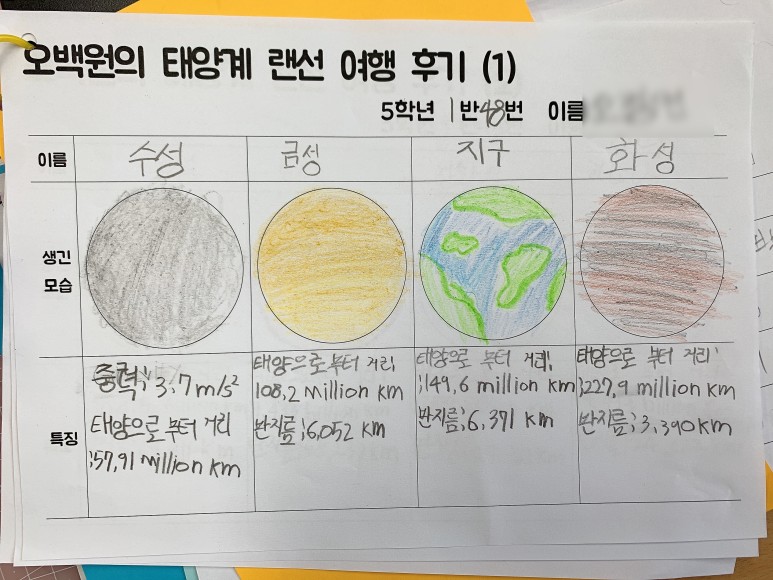 오백원의 태양계 랜선 여행 후기 (1)
5학년 1반 48번 이름
이름 수성 금성 지구 화성
생긴
모습
특징
중력; 3.7m/s²
태양으로부터 거리
;57.91 million km
태양으로부터 거리;
108.2 million km
반지름;6,052 km
태양으로 부터 거리;
;149.6 million km
반지름;6,371 km
태양으로 부터 거리;
;227.9 million km
반지름;3,390 km